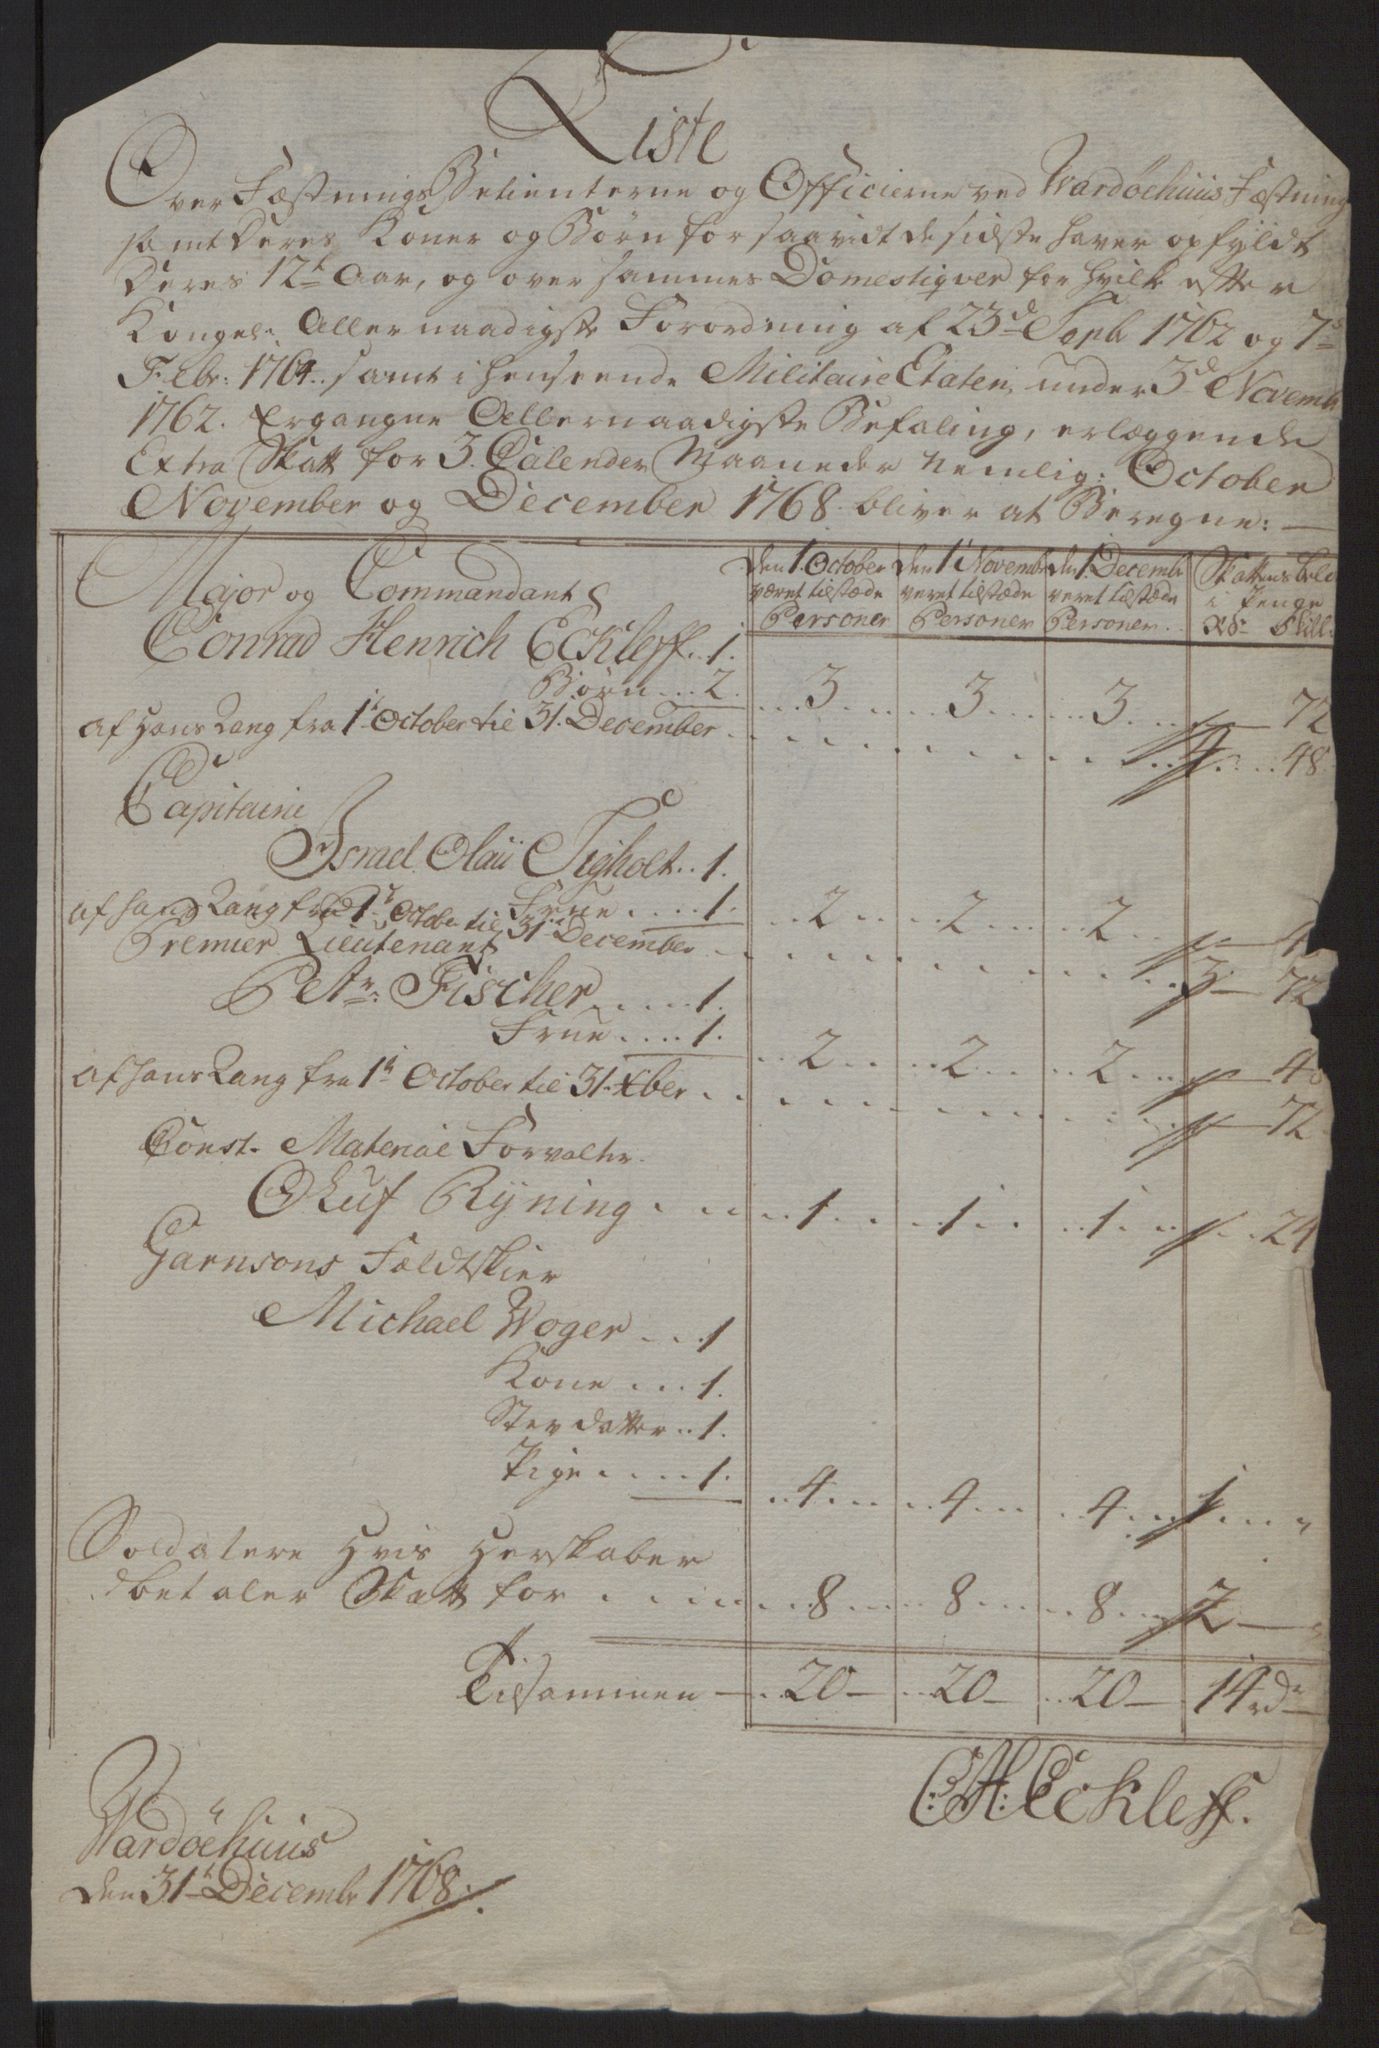 Liste
Over Fæstnings Betienterne og Officierne ved Wardöehuus Fæstning
samt deres Koner og Börn for saavidt de sidste haver opfyldt
deres 12te Aar, og over sammes Domestiqver for hvilke efter
Kongel: Allernaadigste Forordning af 23de Septb 1762 og 7de
Febr: 1764. samt i henseende Militaire Etaten, under 3de Novembr
1762. Ergangne Allernaadigste Befaling, erlæggende
Extra Skatt for 3. Calender Maaneder nemlig: October
November og December 1768 bliver at Beregne:
Den 1. October værret tilstæde Personer
den 1te Novembr verret tilstæde Personer
den 1. Decembr verret tilstæde Personer.
Skattens belö i Penge Rdr Skill:
Major og Commandant
Conrad Henrich Eckleff..1.
Börn....2. 3 3 3 72
af Hans Rang fra 1te October til 31. December 4 48
Capitaine
Israel Olaii Tigholt..1.
Frue.....1. 2 2 2
af hans Rang fra 1te October til 31. December 3 72
Premier Lieutenant
Petr: Fischer.....1.
Frue....1. 2 2 2
af hans Rang fra 1te October til 31. Xber 72
Const. Material Forvalter.
Oluf Rijning 1 1 1 24
Garnisons Feldtskier
Michael Woger...1
Kone....1.
Stevdatter..1.
Pige.....1. 4 4 4 1 "
Soldatere Hvis Herskaber
betaler Skatt for 8 8 8 2 "
Tilsammen 20 20 20 14 rd
C: H: Eckleff.
Wardöehuus
den 31te Decembr 1768.